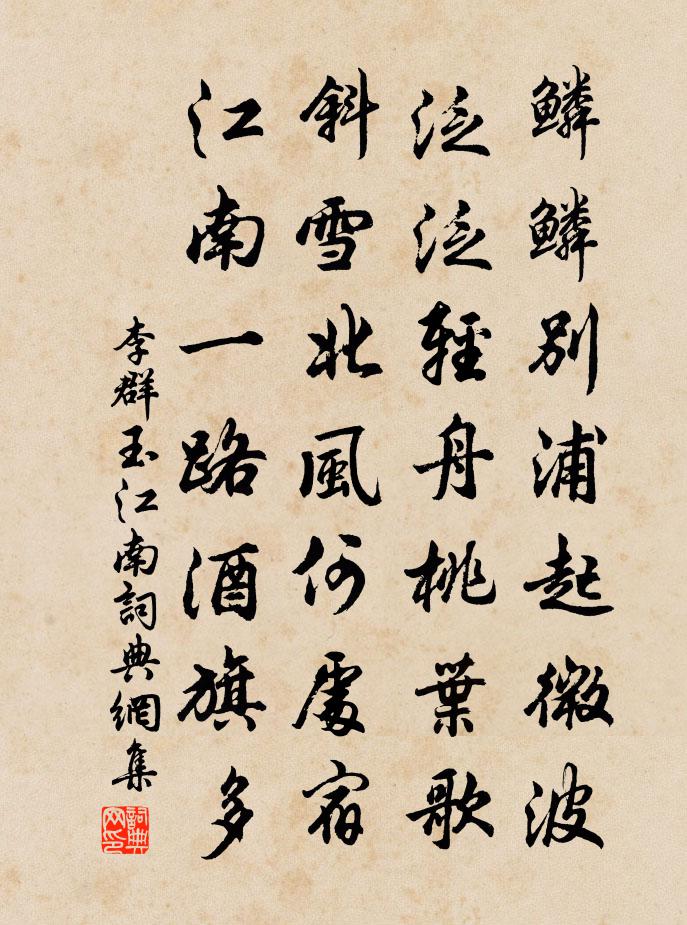 鱗鱗別浦起微波
泛泛輕舟桃葉歌
斜雪北風何處宿
江南一路酒旗多
李群玉江南詞典網集
詞典網印